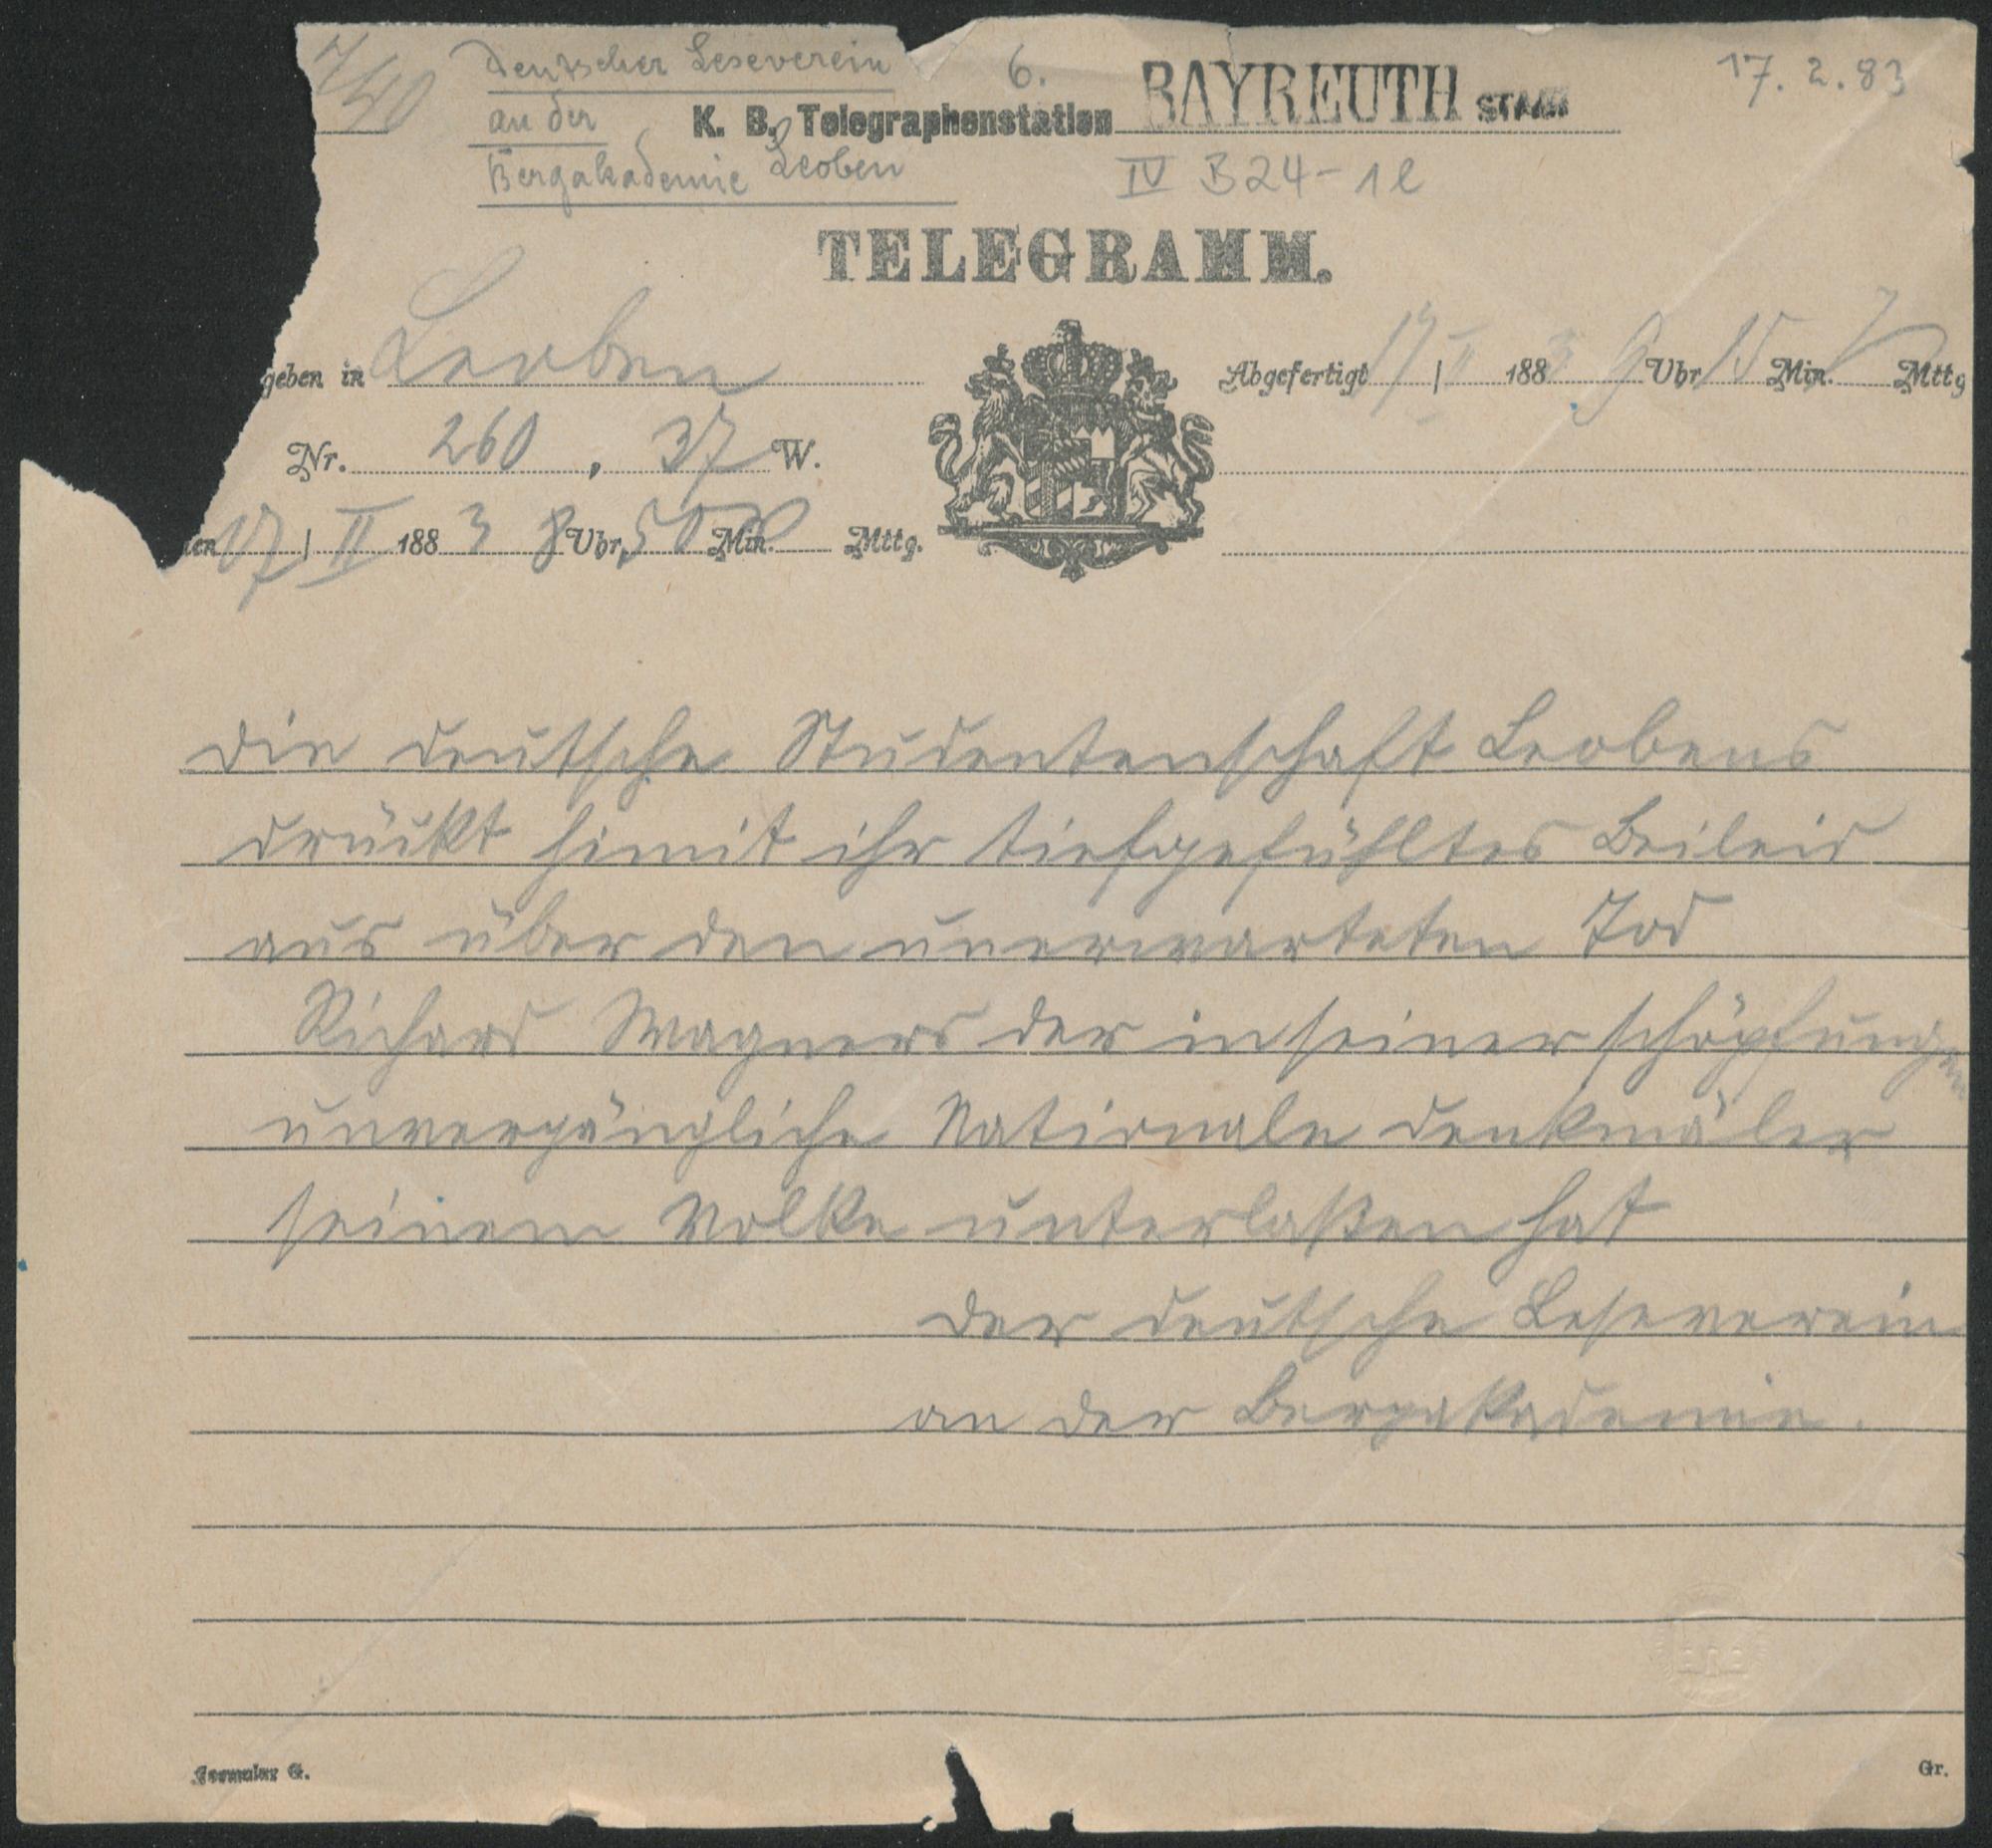 7/40
Deutscher Leseverein
6.
17. 2. 83
an der
K. B. Telegraphenstation BAYREUTH STADT
Bergakademie Leoben
IV B 24-1e
TELEGRAMM.
geben in Leoben
Abgefertigt 17 | II 1883 9 Uhr 15 Min. Mttg
Nr. 260, 37 W.
den 17 | II 1883 8 Uhr, 50 Min. Mttg.
die deutsche Studentenschaft Leobens
drückt himit ihr tiefgefühltes Beileid
aus über den unerwarteten Tod
Richard Wagners der in seiner schöpfungen
unvergängliche Nationale denkmäler
seinem Volke unterlaßen hat
der deutsche Leseverein
an der Bergakademie.
Formular G.
Gr.